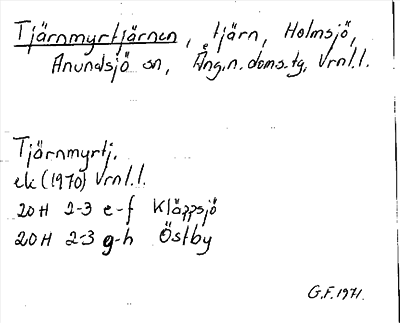 Tjärnmyrtjärnen, tjärn, Holmsjö,
Anundsjö sn, Ång.n.doms.tg, Vrnl.l.
Tjärnmyrtj.
ek (1970) Vrnl.l.
20H 2-3 e-f Kläppsjö
20H 2-3 g-h Östby
G.F. 1971.